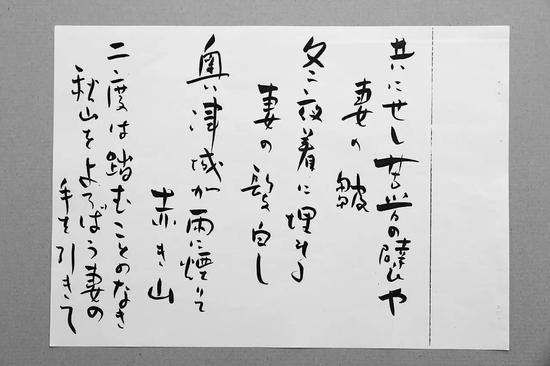 共にせし苦の や
妻の皺
冬夜着に埋
妻の髪白し
奥津城が雨に煙りて
赤き山
二度は踏むことのなき
秋山をよろばう妻の
手を引きて